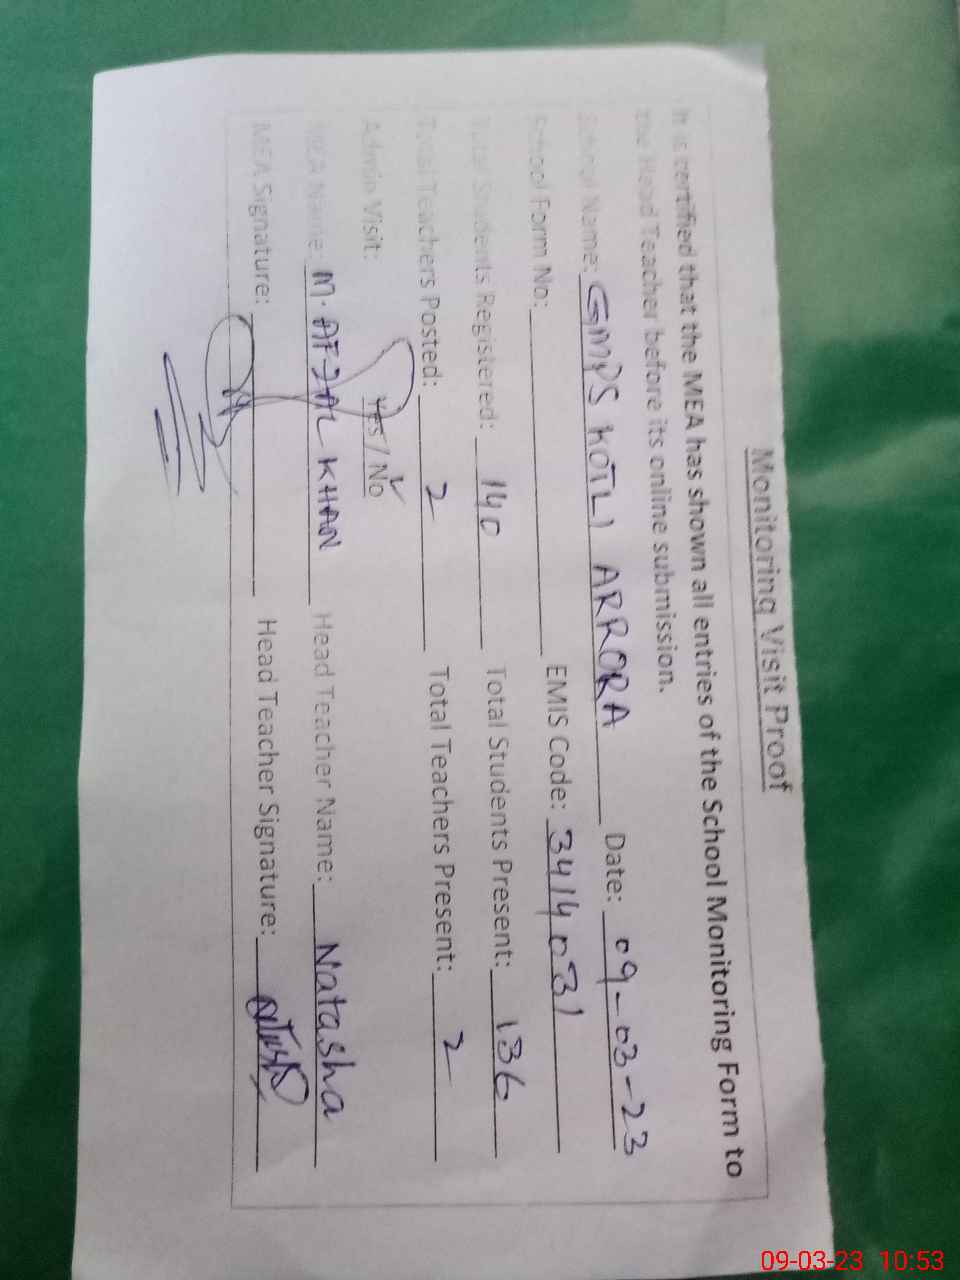 Monitoring Visit Proof
It is certified that the MEA has shown all entries of the School Monitoring Form to
the Head Teacher before its online submission.
School Name: GMPS KOTLI ARRORA Date: 09-03-23
School Form No: EMIS Code: 3414031
Total Students Registered: 140 Total Students Present: 136
Total Teachers Posted: 2 Total Teachers Present: 2
Admin Visit: Yes / No
MEA Name: M. AFZAL KHAN Head Teacher Name: Natasha
MEA Signature: Head Teacher Signature:
09-03-23 10:53